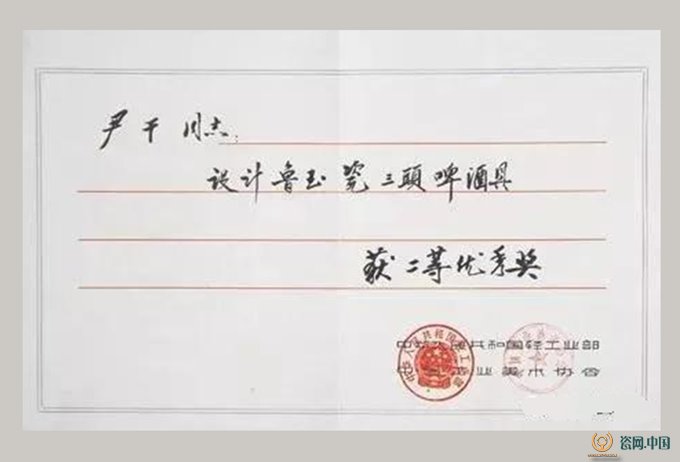 尹干同志：
设计鲁玉瓷三頭啤酒具
获二等优秀奖
中华人民共和国轻工业部
工业美术协会
瓷网.中国